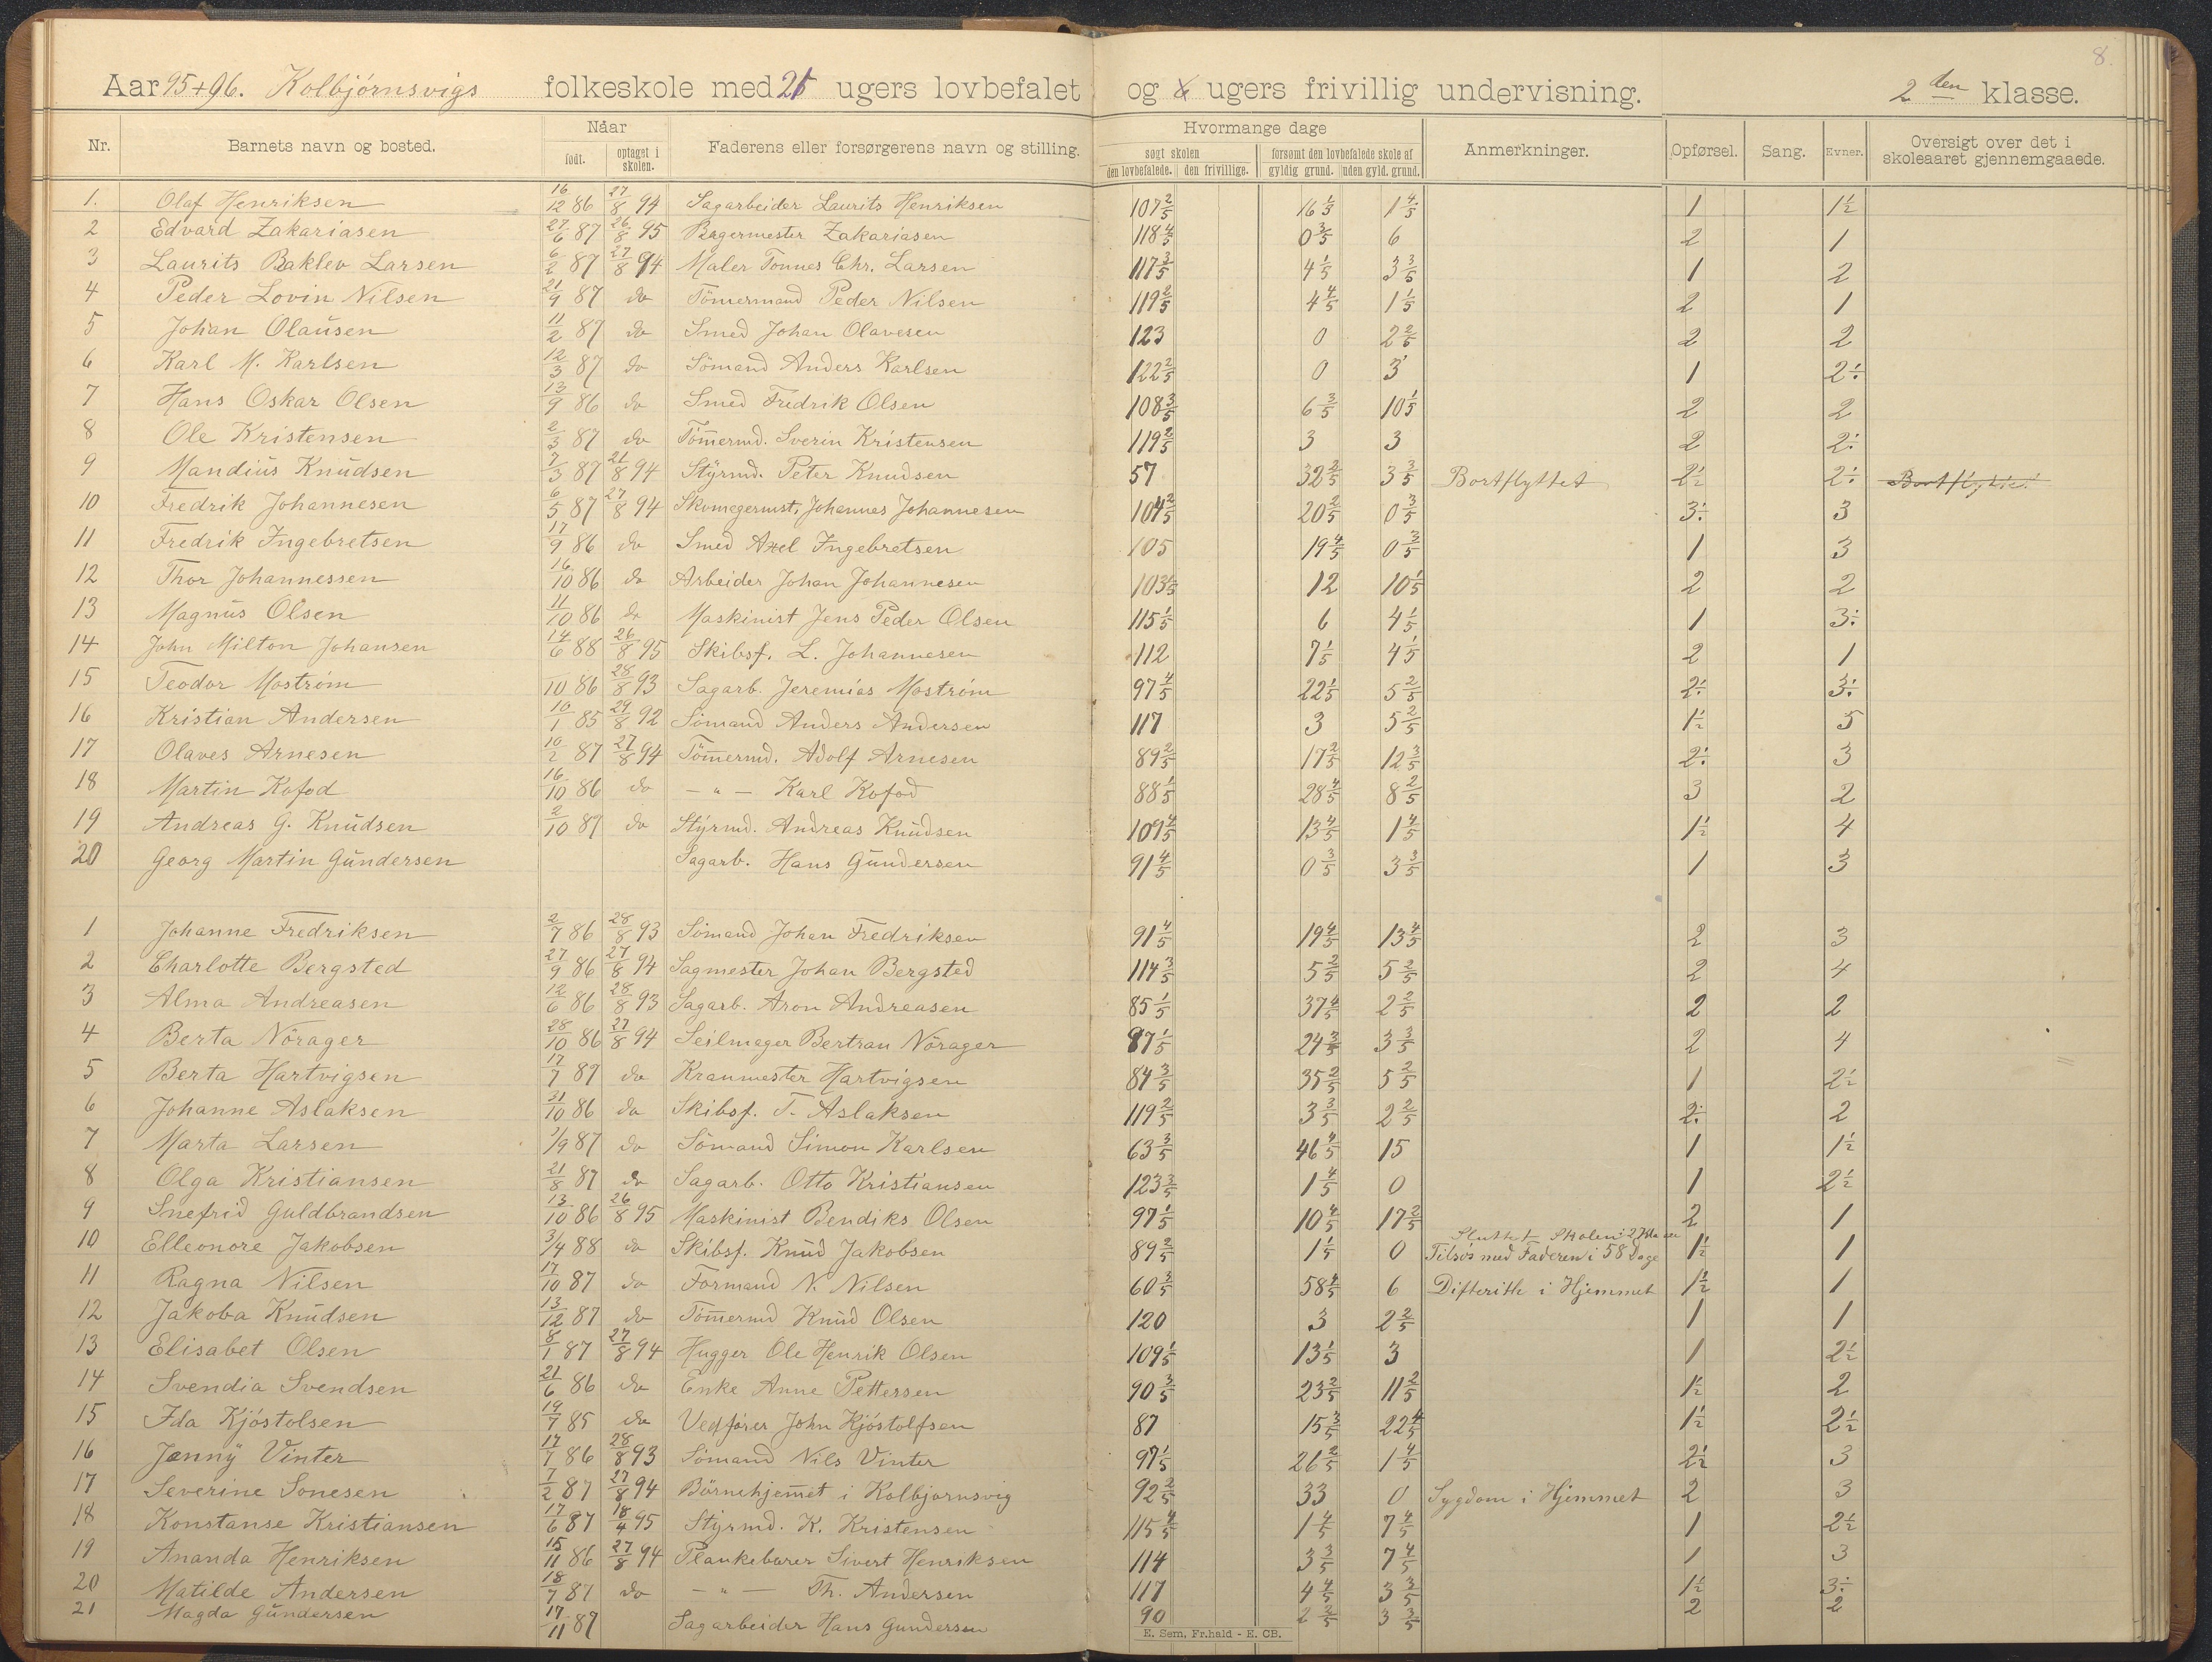 8.
Aar 95+96. Kolbjørnsvigs folkeskole med 21 ugers lovbefalet og ugers frivillig undervisning. 2 den klasse.
Nr. Barnets navn og bosted. Naar født. optaget i skolen. Faderens eller forsørgerens navn og stilling. Hvormange dage søgt skolen den lovbefalede. den frivillige. forsømt den lovbefalede skole af gyldig grund. uden gyld. grund. Anmerkninger. Opførsel. Sang. Evner. Oversigt over det i skoleaaret gjennemgaaede.
1. Olaf Henriksen 16/12 86 27/8 94 Sagarbeider Laurits Henriksen 107 2/5 16 1/3 1 4/5 1 1½
2 Edvard Zakariasen 27/6 87 26/8 95 Bagermester Zakariasen 118 4/5 0 3/5 6 2 1
3 Laurits Baklev Larsen 6/2 87 27/8 94 Maler Tonnes Chr. Larsen 117 3/5 4 1/5 3 3/5 1 2
4 Peder Lovin Nilsen 21/9 87 do Tömermand Peder Nilsen 119 2/5 4 4/5 1 1/5 2 1
5 Johan Olaüsen 11/2 87 do Smed Johan Olavesen 123 0 2 2/5 2 2
6 Karl M. Karlsen 12/3 87 do Sömand Anders Karlsen 122 2/5 0 3 1 2÷
7 Hans Oskar Olsen 13/9 86 do Smed Fredrik Olsen 108 3/5 6 3/5 10 1/5 2 2
8 Ole Kristensen 2/3 87 do Tömermd. Sverin Kristensen 119 2/5 3 3 2 2÷
9 Mandiüs Knüdsen 7/3 87 21/8 94 Styrmd. Peter Knudsen 57 32 2/5 3 3/5 Bortflyttet 2½ 2÷ Bortflyttet
10 Fredrik Johannesen 6/5 87 27/8 94 Skomagermst. Johannes Johannesen 104 2/5 20 2/5 0 3/5 3÷ 3
11 Fredrik Ingebretsen 17/9 86 do Smed Axel Ingebretsen 105 19 4/5 0 3/5 1 3
12 Thor Johannessen 16/10 86 do Arbeider Johan Johannesen 103 1/5 12 10 1/5 2 2
13 Magnüs Olsen 11/10 86 do Maskinist Jens Peder Olsen 115 1/5 6 4 1/5 1 3÷
14 John Milton Johansen 14/6 88 26/8 95 Skibsf. L. Johannesen 112 7 1/5 4 1/5 2 1
15 Teodor Moström 10 86 28/8 93 Sagarb. Jeremias Moström 97 4/5 22 1/5 5 2/5 2÷ 3÷
16 Kristian Andersen 10/1 85 29/8 92 Sömand Anders Andersen 117 3 5 2/5 1½ 5
17 Olaves Arnesen 10/2 87 27/8 94 Tömermd. Adolf Arnesen 89 2/5 17 2/5 12 3/5 2÷ 3
18 Martin Kofod 16/10 86 do — " — Karl Kofod 88 1/5 28 4/5 8 2/5 3 2
19 Andreas G. Knüdsen 2/10 87 do Styrmd. Andreas Knüdsen 109 4/5 13 4/5 1 4/5 1½ 4
20 Georg Martin Gündersen Sagarb. Hans Gündersen 91 4/5 0 3/5 3 3/5 1 3
1 Johanne Fredriksen 2/7 86 28/8 93 Sömand Johan Fredriksen 91 4/5 19 4/5 13 4/5 2 3
2 Charlotte Bergsted 27/9 86 27/8 94 Sagmester Johan Bergsted 114 3/5 5 2/5 5 2/5 2 4
3 Alma Andreasen 12/6 86 28/8 93 Sagarb. Aron Andreasen 85 1/5 37 4/5 2 2/5 2 2
4 Berta Nörager 28/10 86 27/8 94 Seilmager Bertran Nörager 87 1/5 24 3/5 3 3/5 2 4
5 Berta Hartvigsen 17/7 87 do Kranmester Hartvigsen 84 3/5 35 2/5 5 2/5 1 2½
6 Johanne Aslaksen 31/10 86 do Skibsf. T. Aslaksen 119 2/5 3 3/5 2 2/5 2÷ 2
7 Marta Larsen 1/9 87 do Sömand Simon Karlsen 63 3/5 46 4/5 15 1 1½
8 Olga Kristiansen 21/8 87 do Sagarb. Otto Kristiansen 123 3/5 1 4/5 0 1 2½
9 Snefrid Guldbrandsen 13/10 86 26/8 95 Maskinist Bendiks Olsen 97 1/5 10 4/5 17 2/5 2 1
10 Elleonore Jakobsen 3/4 88 do Skibsf. Knüd Jakobsen 89 2/5 1 1/5 0 Sluttet Skolen i 2 Klasse Tilsøs med Faderen i 58 Dage 1½ 1
11 Ragna Nilsen 17/10 87 do Formand N. Nilsen 60 3/5 58 4/5 6 Difteritle i Hjemmet 1½ 1
12 Jakoba Knüdsen 13/12 87 do Tömermd Knüd Olsen 120 3 2 2/5 1 1
13 Elisabet Olsen 8/1 87 27/8 94 Hugger Ole Henrik Olsen 109 1/5 13 1/5 3 1 2½
14 Svendia Svendsen 21/6 86 do Enke Anne Pettersen 90 3/5 23 2/5 11 2/5 1½ 2
15 Ida Kjóstolsen 19/7 85 do Vedfører John Kjóstolfsen 87 15 3/5 22 4/5 1½ 2½
16 Jenny Vinter 17/7 86 28/8 93 Sömand Nils Vinter 97 1/5 26 2/5 1 4/5 2½ 3
17 Severine Sonesen 7/2 87 27/8 94 Börnehjemet i Kolbjørnsvig 92 2/5 33 0 Sygdom i Hjemmet 2 3
18 Konstanse Kristiansen 17/6 87 18/4 95 Styrmd. K. Kristensen 115 4/5 1 4/5 7 4/5 1 2½
19 Ananda Henriksen 15/11 86 27/8 94 Plankebærer Sivert Henriksen 114 3 3/5 7 4/5 1 3
20 Matilde Andersen 18/7 87 do — " — Th. Andersen 117 4 4/5 3 3/5 1½ 3÷
21 Magda Gündersen 17/11 87 Sagarbeider Hans Gundersen 90 2 2/5 3 3/5 2 2
E. Sem, Fr.hald - E. CB.